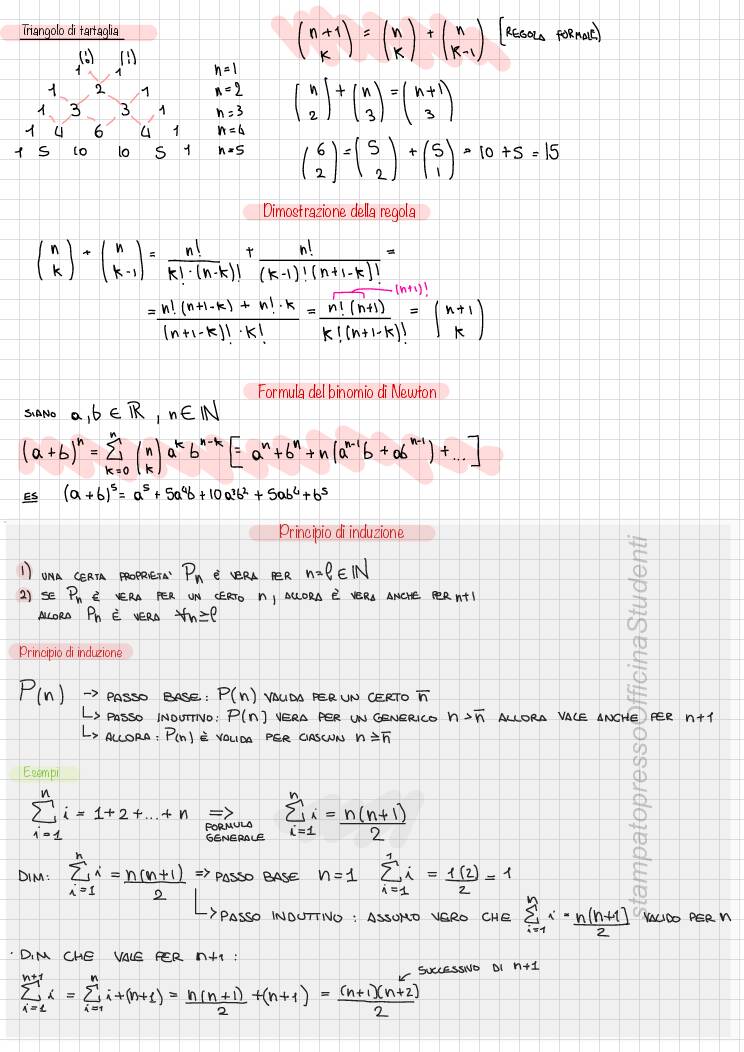 Triangolo di tartaglia
(n+1 k) = (n k) + (n k-1) [REGOLA FORMALE]
(1 0) (1 1)
1 1 n=1
1 2 1 n=2
1 3 3 1 n=3
1 4 6 4 1 n=4
1 5 10 10 5 1 n=5
(n 2) + (n 3) = (n+1 3)
(6 2) = (5 2) + (5 1) = 10 + 5 = 15
Dimostrazione della regola
(n k) + (n k-1) = n!/(k!·(n-k)!) + n!/((k-1)!(n+1-k)!) =
= (n!(n+1-k) + n!·k)/((n+1-k)!·k!) = n!(n+1)/(k!(n+1-k)!) = (n+1 k)
(n+1)!
Formula del binomio di Newton
SIANO a,b ∈ ℝ, n ∈ ℕ
(a+b)ⁿ = Σ k=0 n (n k) aᵏ bⁿ⁻ᵏ [= aⁿ + bⁿ + n(aⁿ⁻¹b + abⁿ⁻¹) + ...]
ES (a+b)⁵ = a⁵ + 5a⁴b + 10a³b² + 5ab⁴ + b⁵
Principio di induzione
1) UNA CERTA PROPRIETA' Pn È VERA PER n=ℓ ∈ ℕ
2) SE Pn È VERA PER UN CERTO n, ALLORA È VERA ANCHE PER n+1
ALLORA Pn È VERA ∀n≥ℓ
Principio di induzione
P(n) → PASSO BASE: P(n) VALIDA PER UN CERTO n̅
↳ PASSO INDUTTIVO: P(n) VERA PER UN GENERICO n>n̅ ALLORA VALE ANCHE PER n+1
↳ ALLORA: P(n) È VALIDA PER CIASCUN n≥n̅
Esempi
Σ i=1 n i = 1+2+...+n => FORMULA GENERALE Σ i=1 n i = n(n+1)/2
DIM: Σ i=1 n i = n(n+1)/2 => PASSO BASE n=1 Σ i=1 1 i = 1(2)/2 = 1
↳ PASSO INDUTTIVO: ASSUMO VERO CHE Σ i=1 n i = n(n+1)/2 VALIDO PER n
· DIM CHE VALE PER n+1:
SUCCESSIVO DI n+1
Σ i=1 n+1 i = Σ i=1 n i+(n+1) = n(n+1)/2 +(n+1) = (n+1)(n+2)/2
stampatopressoOfficinaStudenti